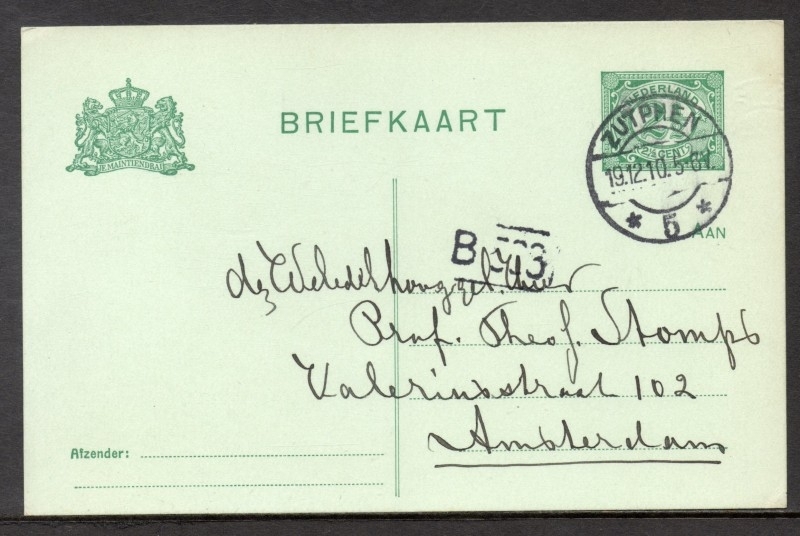 NEDERLAND
2½ CENT
JE MAINTIENDRAI
BRIEFKAART
ZUTPHEN
19.12.10. 5-6
5
AAN
B
Prof. Theof. Stomps
Valeriusstraat 102
Amsterdam
Afzender: